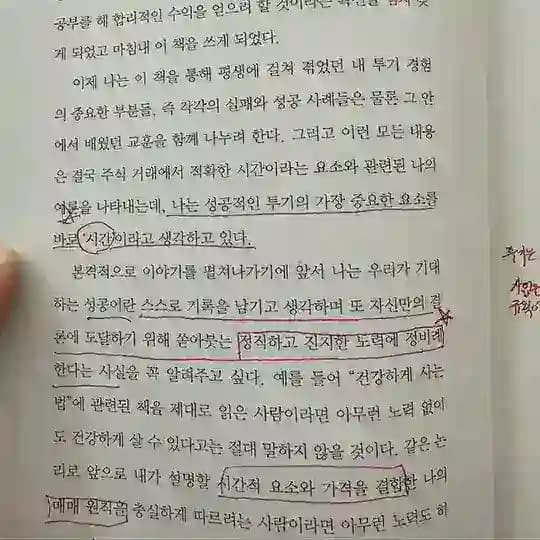 공부를 해 합리적인 수익을 얻으려 할 것이라는
게 되었고 마침내 이 책을 쓰게 되었다.
이제 나는 이 책을 통해 평생에 걸쳐 겪었던 내 투기 경험
의 중요한 부분들, 즉 각각의 실패와 성공 사례들은 물론 그 안
에서 배웠던 교훈을 함께 나누려 한다. 그리고 이런 모든 내용
은 결국 주식 거래에서 적확한 시간이라는 요소와 관련된 나의
이론을 나타내는데, 나는 성공적인 투기의 가장 중요한 요소를
바로 '시간'이라고 생각하고 있다.
본격적으로 이야기를 펼쳐나가기에 앞서 나는 우리가 기대
하는 성공이란 스스로 기록을 남기고 생각하며 또 자신만의 결
론에 도달하기 위해 쏟아붓는 정직하고 진지한 노력에 정비례
한다는 사실을 꼭 알려주고 싶다. 예를 들어 "건강하게 사는
법"에 관련된 책을 제대로 읽은 사람이라면 아무런 노력 없이
도 건강하게 살 수 있다고는 절대 말하지 않을 것이다. 같은 논
리로 앞으로 내가 설명할 시간적 요소와 가격을 결합한 나의
매매 원칙을 충실하게 따르려는 사람이라면 아무런 노력도 하